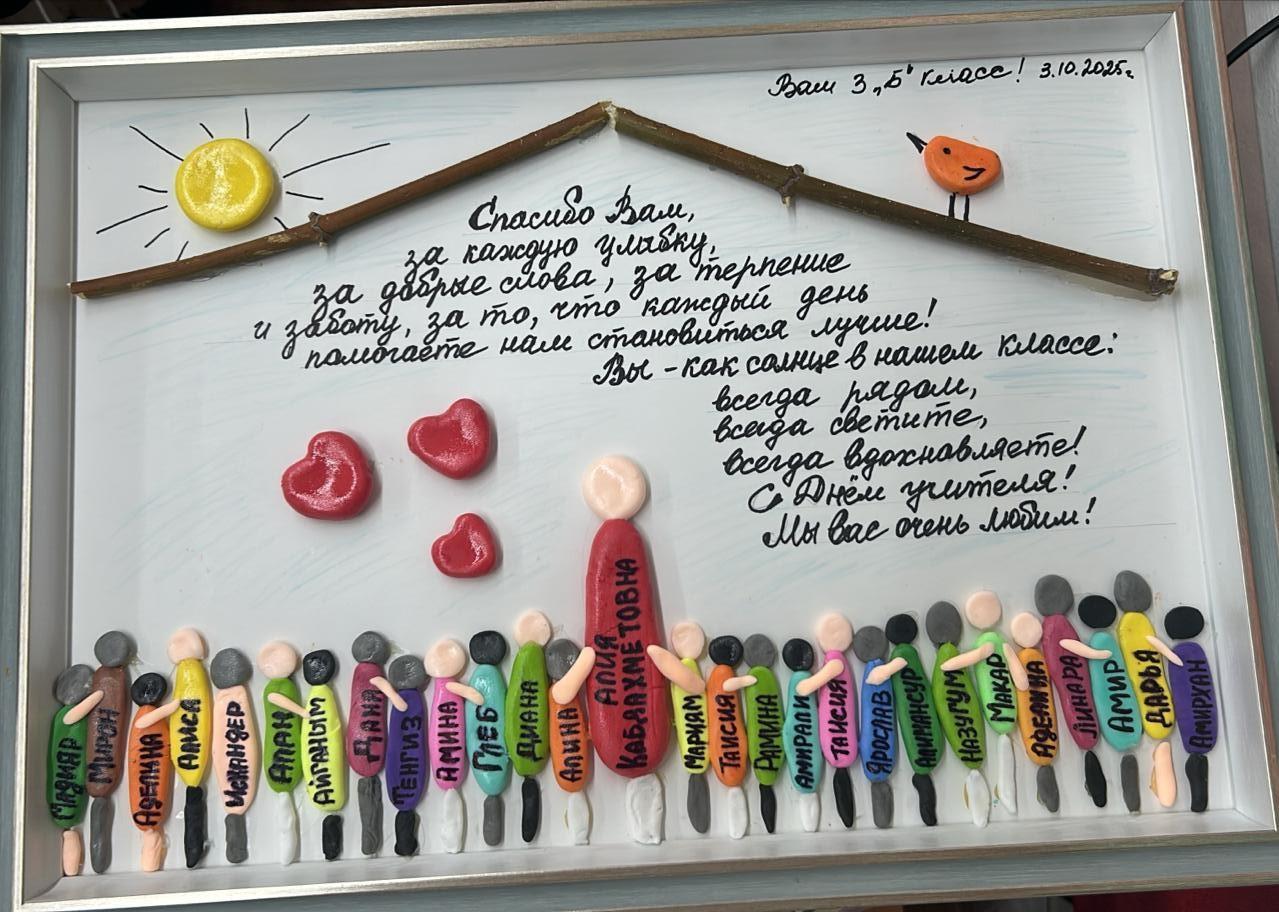 Вам 3 „Б" класс! 3.10.2025г
Спасибо Вам,
за каждую улыбку,
за добрые слова, за терпение
и заботу, за то, что каждый день
помогаете нам становиться лучше!
Вы - как солнце в нашем классе:
всегда рядом,
всегда светите,
всегда вдохновляете!
С Днём учителя!
Мы вас очень любим!
МАДИЯР
МИРОН
АДЕЛИНА
АЛИСА
ИСКАНДЕР
АЛАН
АЙГАНЫМ
ДАНА
ТЕНГИЗ
АМИНА
ГЛЕБ
ДИАНА
АЛИНА
АЛИЯ
КАБЛАХМЕТОВНА
МАРИЯМ
ТАИСИЯ
АМИНА
АМИРАЛИ
ТАИСИЯ
ЯРОСЛАВ
АЛИМАНСУР
НАЗУГУМ
МАКАР
АДЕЛИНА
ДИНАРА
АМИР
ДАРЬЯ
АМИРХАН